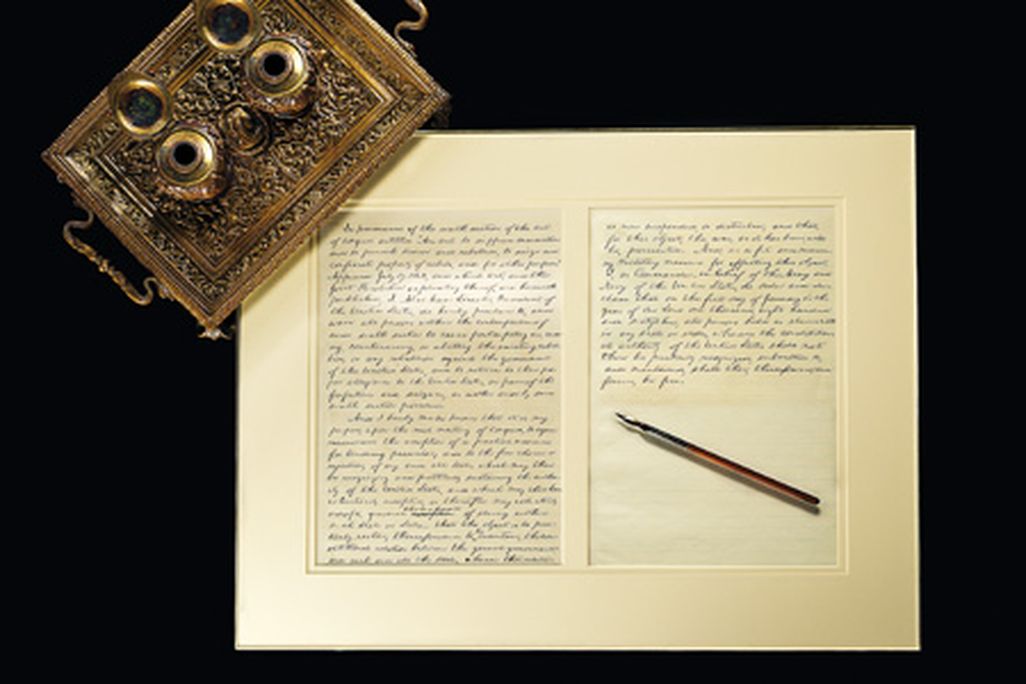 In pursuance of the sixth section of the act
of congress entitled "An act to suppress insurrection
and to punish treason and rebellion, to seize and
confiscate property of rebels, and for other purposes"
Approved July 17, 1862, and which act, and the
Joint Resolution explanatory thereof, are herewith
published, I, Abraham Lincoln, President of
the United States, do hereby proclaim to, and
warn all persons within the contemplation of
said sixth section to cease participating in,
countenancing, or abetting the existing
or any rebellion against the government
of the United States, and to return to their
allegiance to the United States, on pain of the
forfeitures and seizures, as within and by
said sixth section provided.
And I hereby make known that it is my
purpose, upon the next meeting of congress, to again
recommend the adoption of a practical measure
for tendering pecuniary aid to the free choice or
rejection, of any and all States which may then
be recognizing and practically sustaining the
of the United States, and which may then have
voluntarily adopted, or thereafter may voluntarily
gradual of slavery within
such State or States that the object is to
restore, thenceforward to be maintained, the
relation between the general government,
and each, and all the states, wherein that relation
is now suspended, or disturbed; and that,
for this object, the war, as it has been, will
be, prosecuted. And, as a fit and necessary
military measure for effecting this object,
I, as Commander-in-Chief of the Army and
Navy of the United States, do order and
declare that on the first day of January in the
year of Our Lord one thousand, eight hundred
and sixtythree, all persons held as slaves within
any state or states, wherein the constitutional
authority of the United States shall not
then be practically recognized, submitted to,
and maintained, shall then, thenceforward, and
forever, be free.